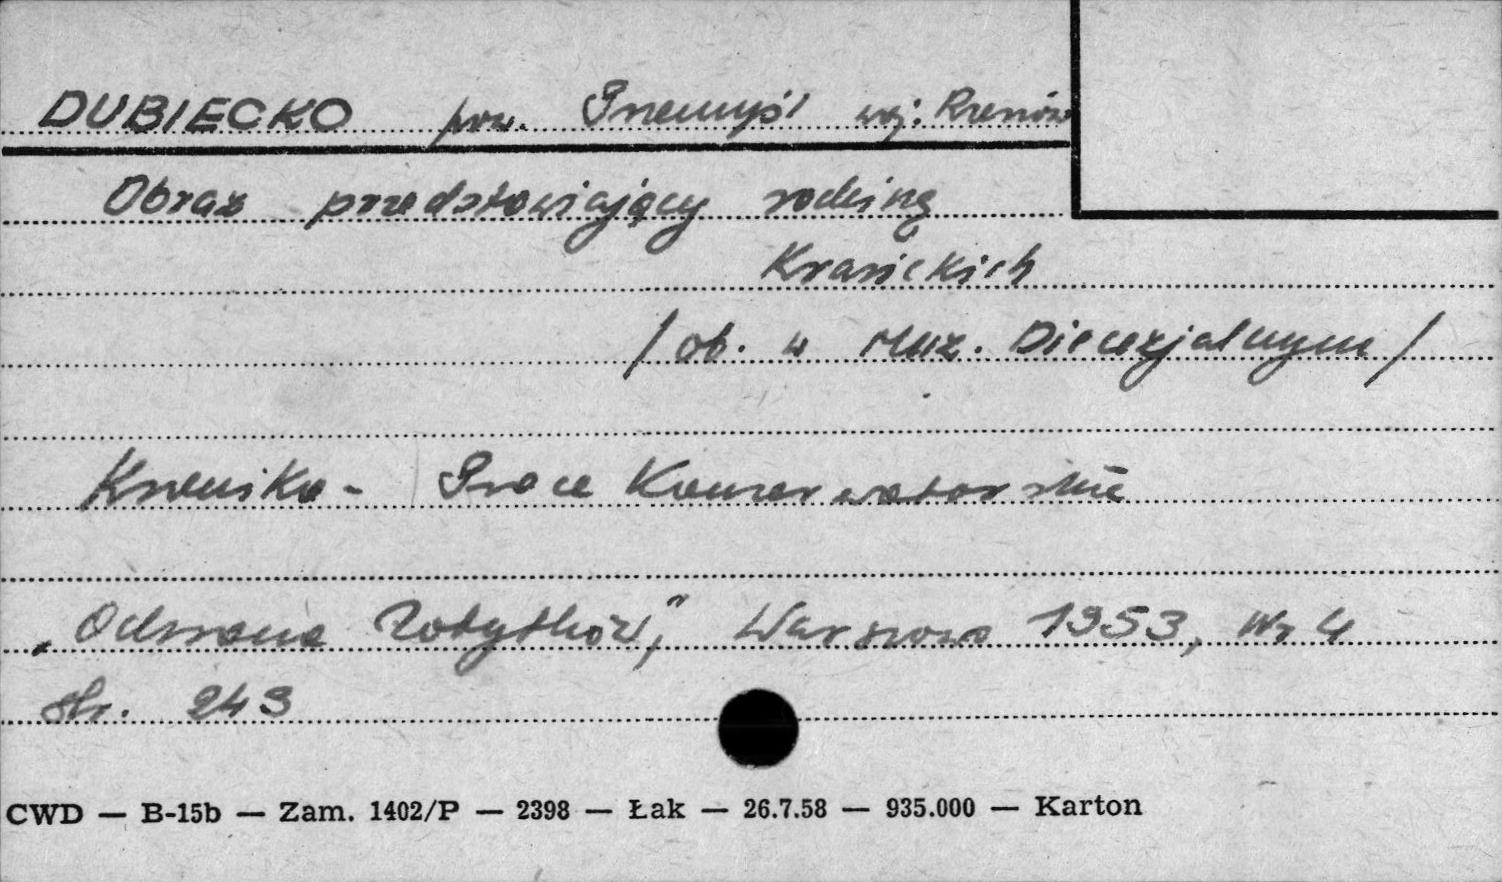 DUBIECKO pow. Przemyśl woj. Rzeszów
Obraz przedstawiający rodzinę
Krasickich
/ ob. w Muz. Diecezjalnym /
Kronika - Prace Konserwatorskie
„Ochrona Zabytków," Warszawa 1953, Nr 4
str. 243
CWD — B-15b — Zam. 1402/P — 2398 — Łak — 26.7.58 — 935.000 — Karton